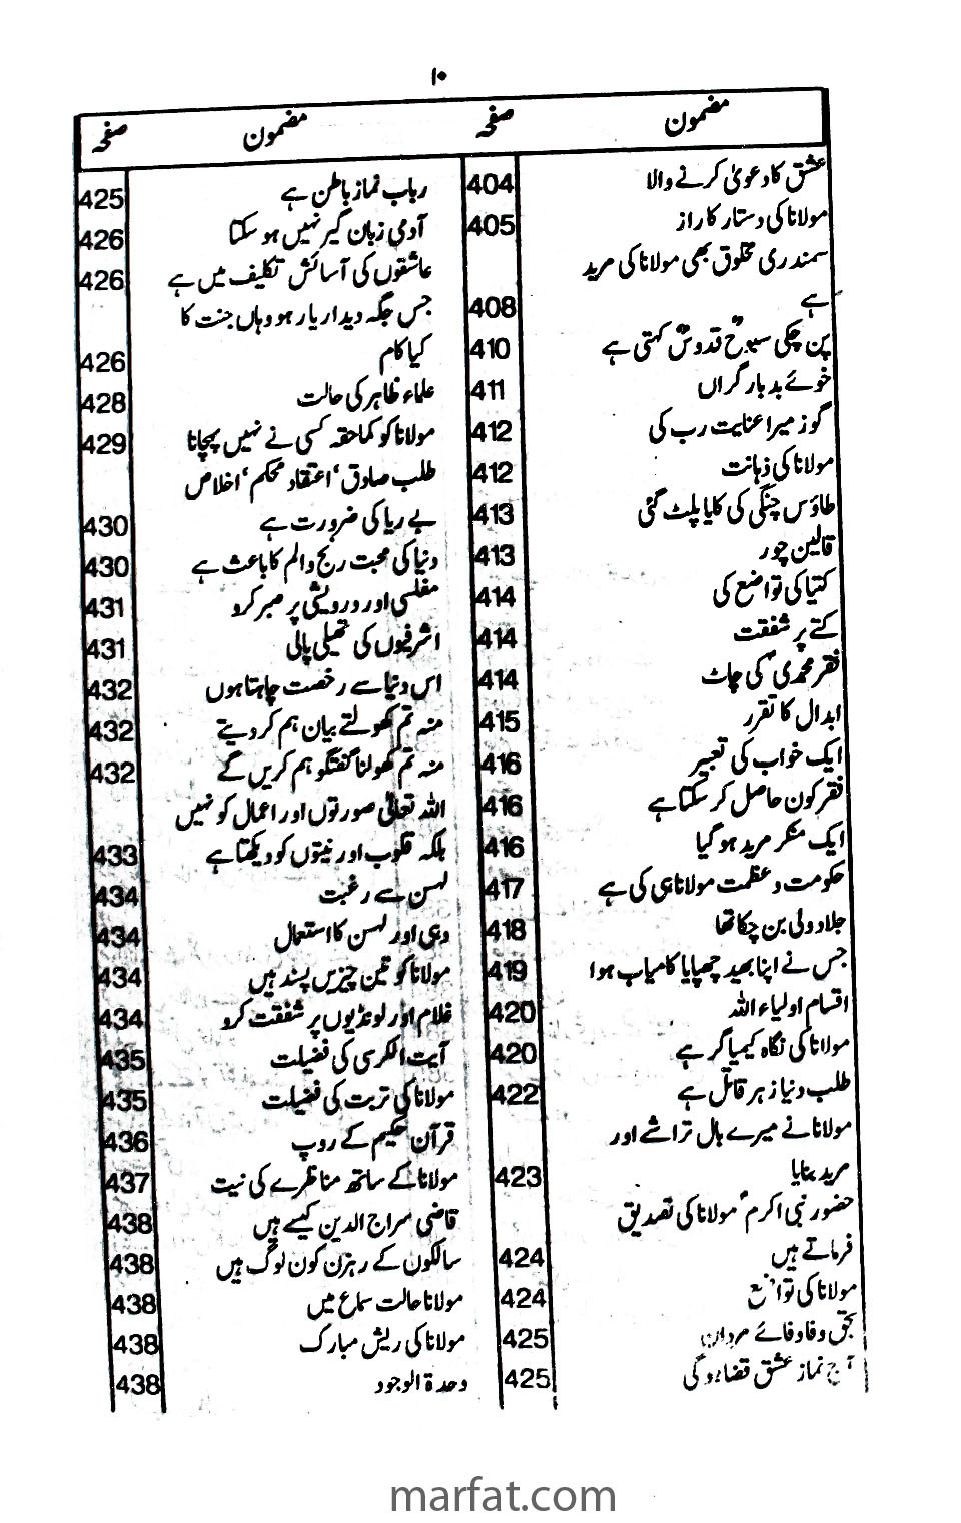 ۱۰
مضمون صفحہ
عشق کا دعویٰ کرنے والا 404
مولانا کی دستار کا راز 405
سمندری مخلوق بھی مولانا کی مرید
ہے 408
پن چکی سبوحؒ قدوسؒ کہتی ہے 410
خوئے بد بار گراں 411
گوز میرا عنایت رب کی 412
مولانا کی ذہانت 412
طاؤس چنگی کی کایا پلٹ گئی 413
قالین چور 413
کتیا کی تواضع کی 414
کتے پر شفقت 414
فقر محمدیؐ کی چاٹ 414
ابدال کا تقرر 415
ایک خواب کی تعبیر 416
فقر کون حاصل کر سکتا ہے 416
ایک منکر مرید ہو گیا 416
حکومت و عظمت مولانا ہی کی ہے 417
جلاد ولی بن چکا تھا 418
جس نے اپنا بھید چھپایا کامیاب ہوا 419
اقسام اولیاء اللہ 420
مولانا کی نگاہ کیمیا گر ہے 420
طلب دنیا زہر قاتل ہے 422
مولانا نے میرے بال تراشے اور
مرید بنایا 423
حضور نبی اکرمؐ مولانا کی تصدیق
فرماتے ہیں 424
مولانا کی تواضع 424
بحق وفا وفائے مردان 425
آج نماز عشق قضا ہو گی 425
مضمون صفحہ
رباب نماز باطن ہے 425
آدمی زبان گیر نہیں ہو سکتا 426
عاشقوں کی آسائش تکلیف میں ہے 426
جس جگہ دیدار یار ہو وہاں جنت کا
کیا کام 426
علماء ظاہر کی حالت 428
مولانا کو کماحقہ کسی نے نہیں پہچانا 429
طلب صادق‘ اعتقاد محکم‘ اخلاص
بے ریا کی ضرورت ہے 430
دنیا کی محبت رنج و الم کا باعث ہے 430
مفلسی اور درویشی پر صبر کرو 431
اشرفیوں کی تھیلی پالی 431
اس دنیا سے رخصت چاہتا ہوں 432
منہ تم کھولتے بیان ہم کر دیتے 432
منہ تم کھولنا گفتگو ہم کریں گے 432
اللہ تعالیٰ صورتوں اور اعمال کو نہیں
بلکہ قلوب اور نیتوں کو دیکھتا ہے 433
لہسن سے رغبت 434
دہی اور لہسن کا استعمال 434
مولانا کو تین چیزیں پسند ہیں 434
غلام اور لونڈیوں پر شفقت کرو 434
آیت الکرسی کی فضیلت 435
مولانا کی تربت کی فضیلت 435
قرآن حکیم کے روپ 436
مولانا کے ساتھ مناظرے کی نیت 437
قاضی سراج الدین کیسے ہیں 438
سالکوں کے رہزن کون لوگ ہیں 438
مولانا حالت سماع میں 438
مولانا کی ریش مبارک 438
وحدۃ الوجود 438
marfat.com